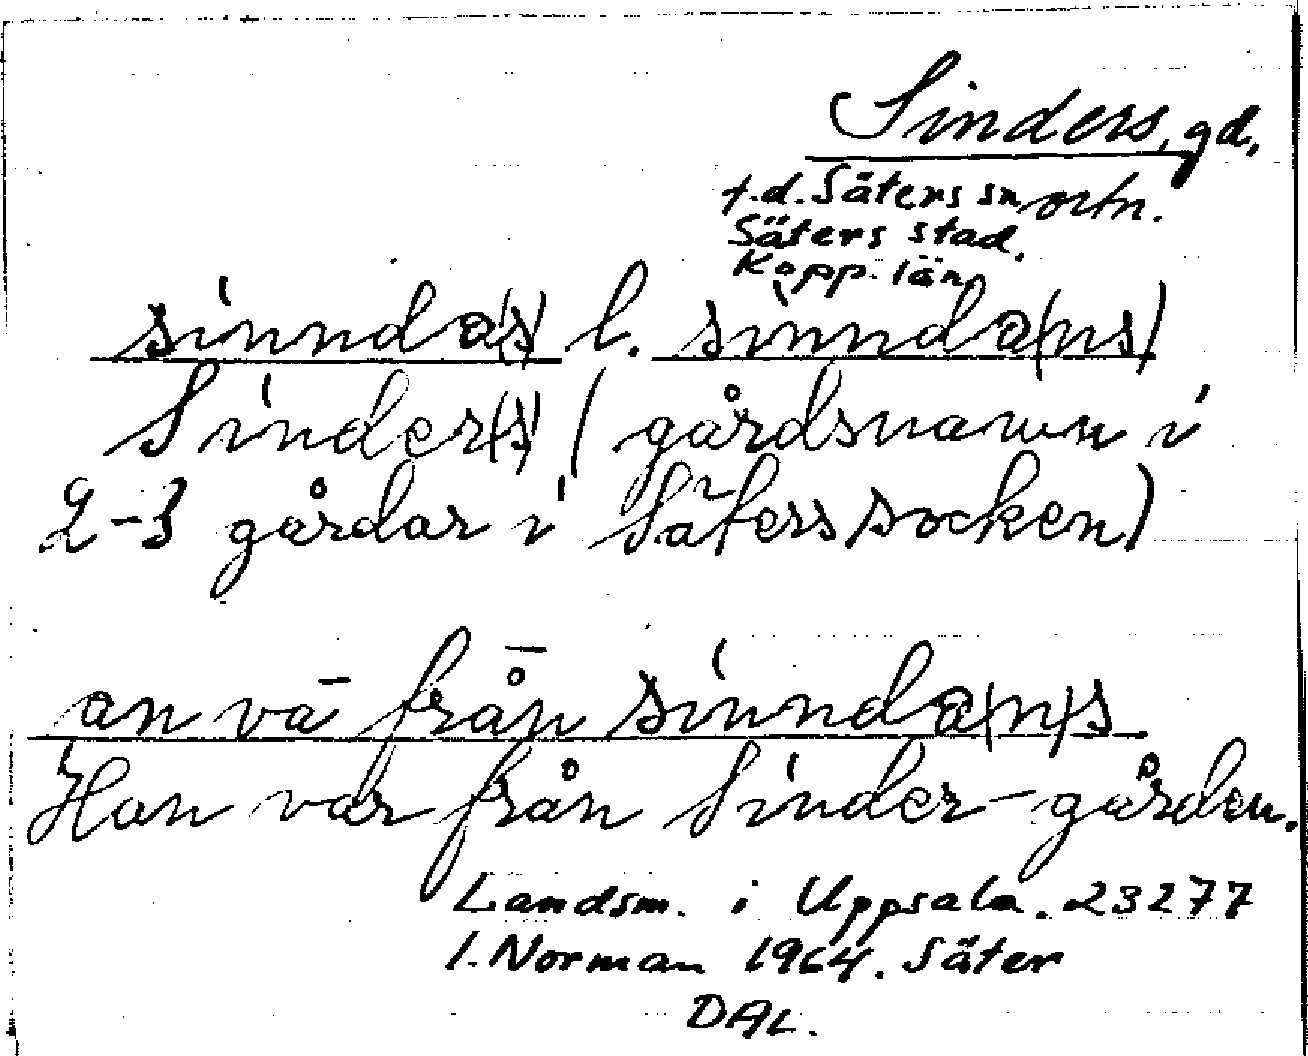 Sinders, gd.
t.d. Säters sn ortn.
Säters stad.
Kopp. län
sinndas(s) l. sinnda(ns)
Sinder(s) (gårdsnamn i
2-3 gårdar i Säters socken)
an vā från sinnda(n)s
Han var från Sinder-gården.
Landsm. i Uppsala. 23277
I. Norman 1964. Säter
DAL.